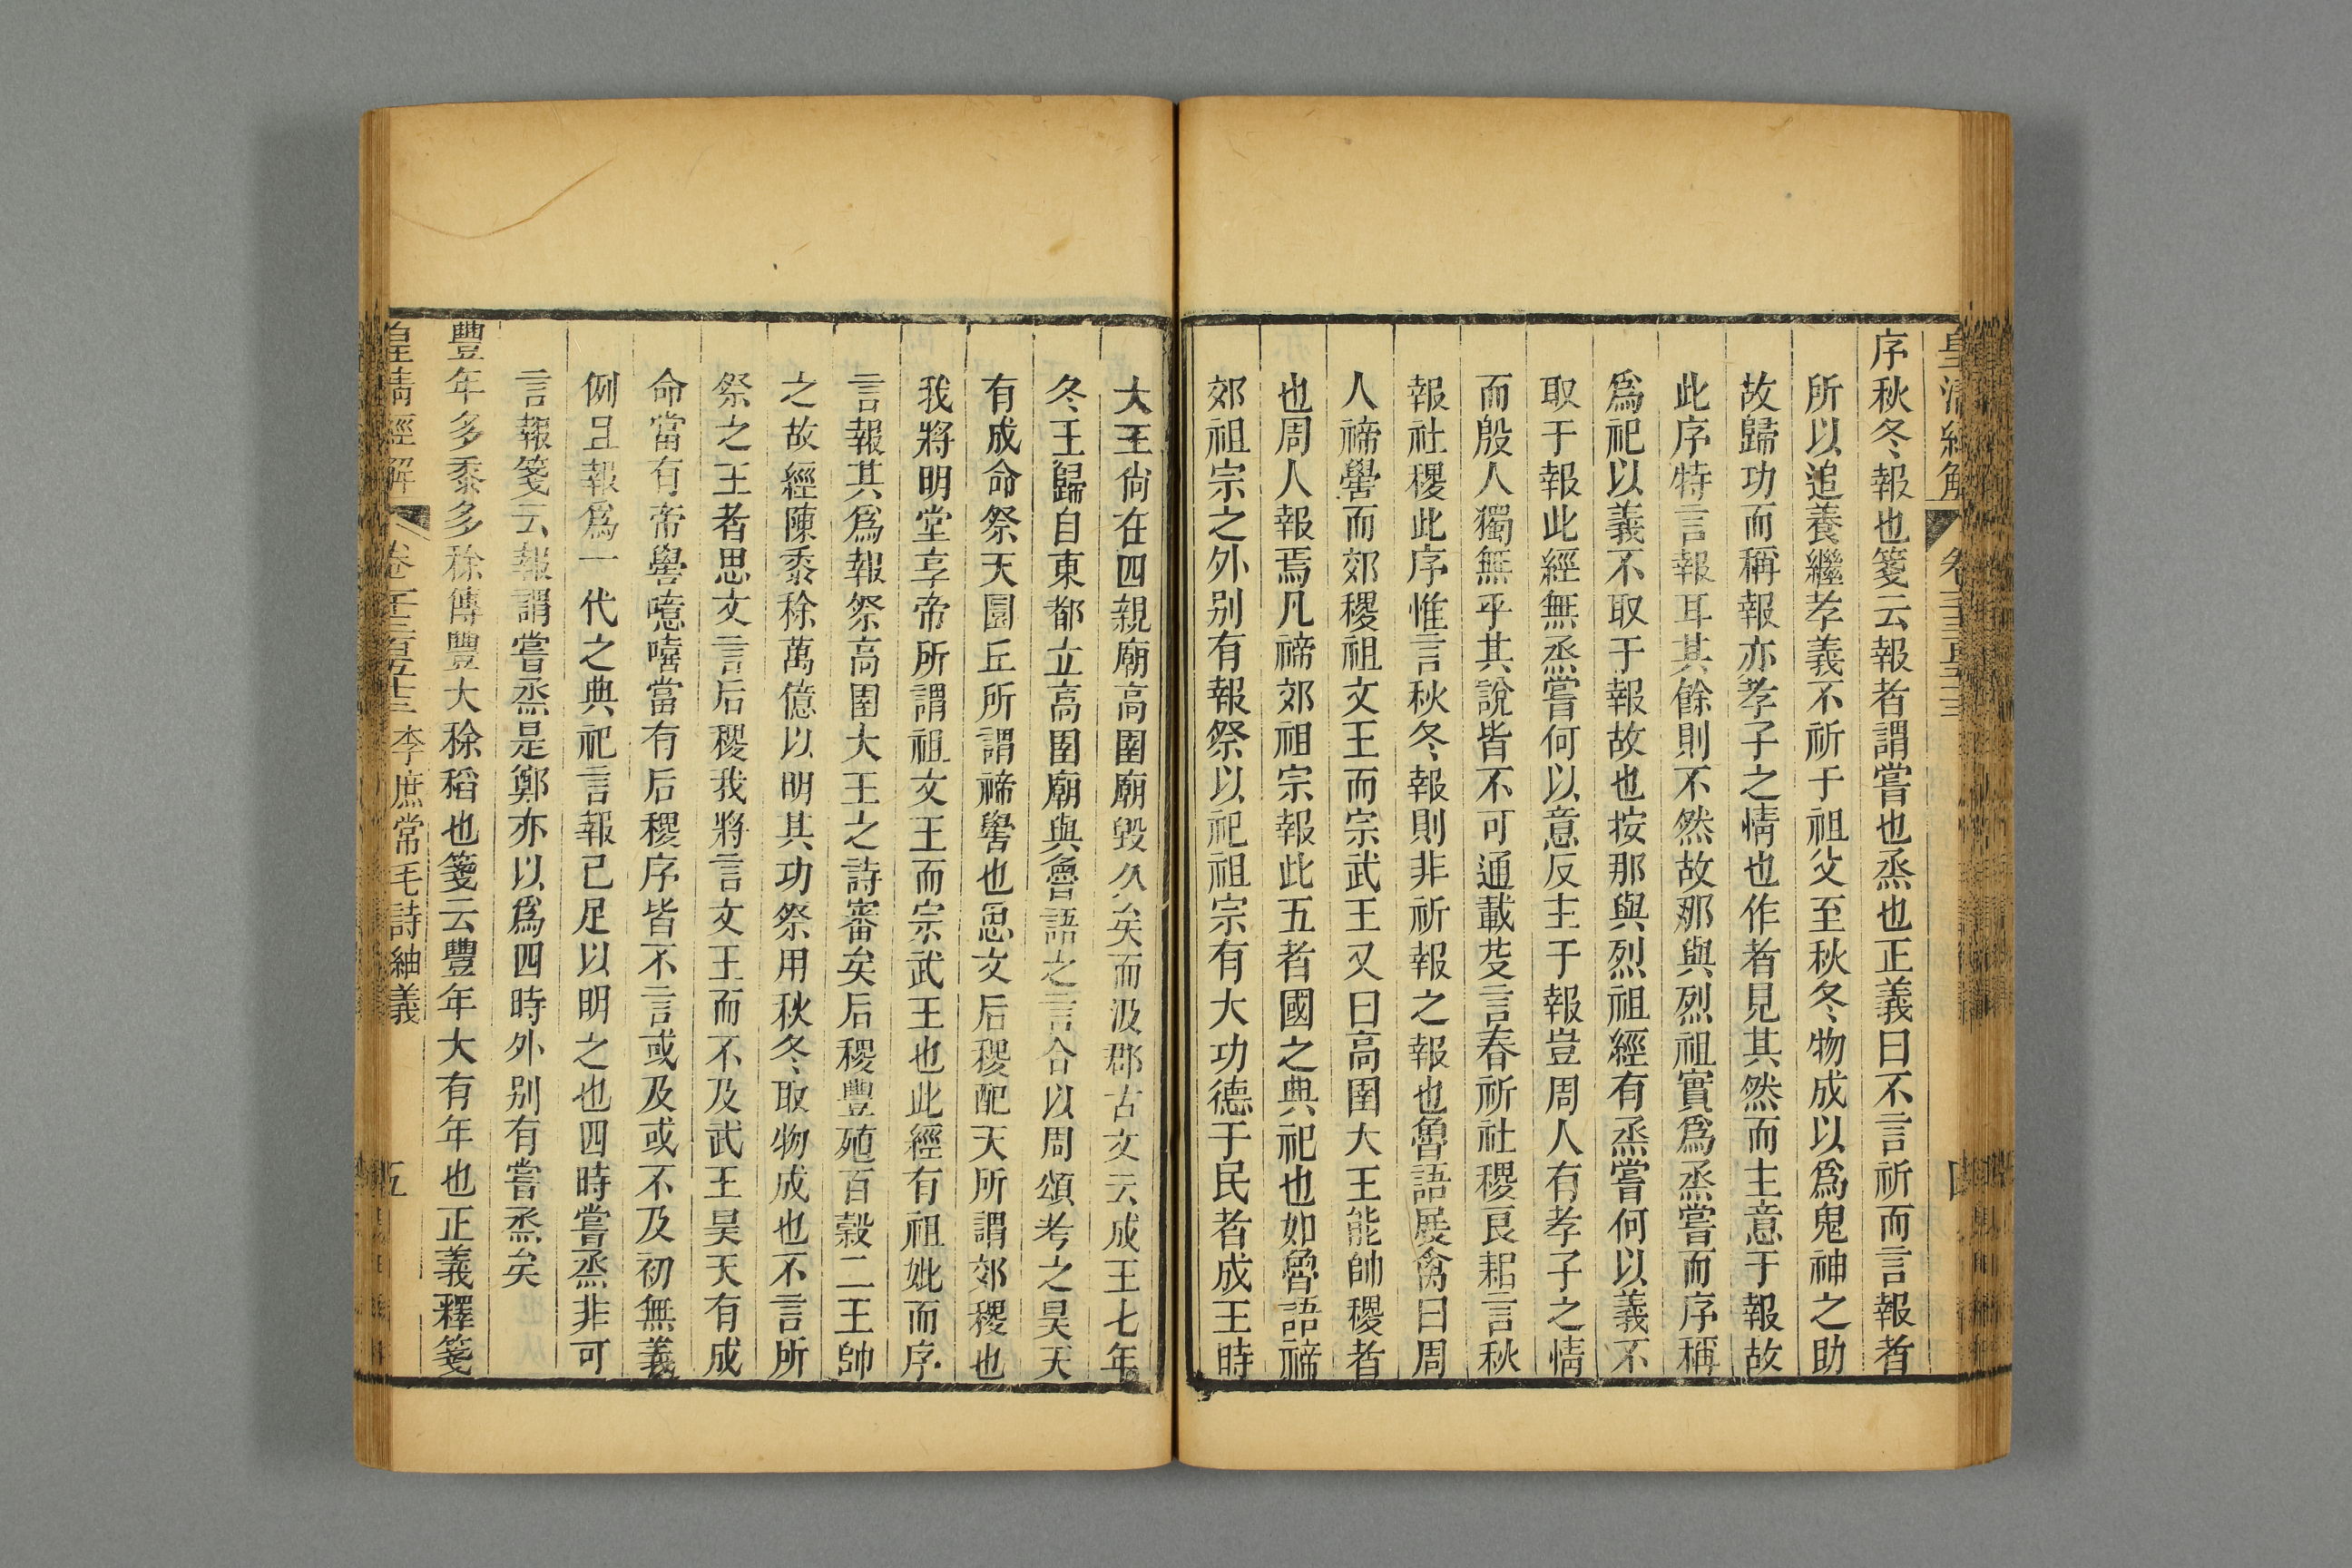 序秋冬報也箋云報者謂嘗也烝也正義曰不言祈而言報者
所以追養繼孝義不祈于祖父至秋冬物成以爲鬼神之助
故歸功而稱報亦孝子之情也作者見其然而主意于報故
此序特言報耳其餘則不然故那與烈祖實爲烝嘗而序稱
爲祀以義不取于報故也按那與烈祖經有烝嘗何以義不
取于報此經無烝嘗何以意反主于報豈周人有孝子之情
而殷人獨無乎其說皆不可通載芟言春祈社稷良耜言秋
報社稷此序惟言秋冬報則非祈報之報也魯語展禽曰周
人禘嚳而郊稷祖文王而宗武王又曰高圉大王能帥稷者
也周人報焉凡禘郊祖宗報此五者國之典祀也如魯語禘
郊祖宗之外别有報祭以祀祖宗有大功德于民者成王時
大王尙在四親廟高圉廟毀久矣而汲郡古文云成王七年
冬王歸自東都立高圉廟與魯語之言合以周頌考之昊天
有成命祭天圜丘所謂禘嚳也思文后稷配天所謂郊稷也
我將明堂享帝所謂祖文王而宗武王也此經有祖妣而序
言報其爲報祭高圉大王之詩審矣后稷豐殖百穀二王帥
之故經陳黍稌萬億以明其功祭用秋冬取物成也不言所
祭之王者思文言后稷我將言文王而不及武王昊天有成
命當有帝嚳噫嘻當有后稷序皆不言或及或不及初無義
例且報爲一代之典祀言報已足以明之也四時嘗烝非可
言報箋云報謂嘗烝是鄭亦以爲四時外别有嘗烝矣
豐年多黍多稌傳豐大稌稻也箋云豐年大有年也正義釋箋
皇淸經解
卷一千三百五十三
李庶常毛詩紬義
五